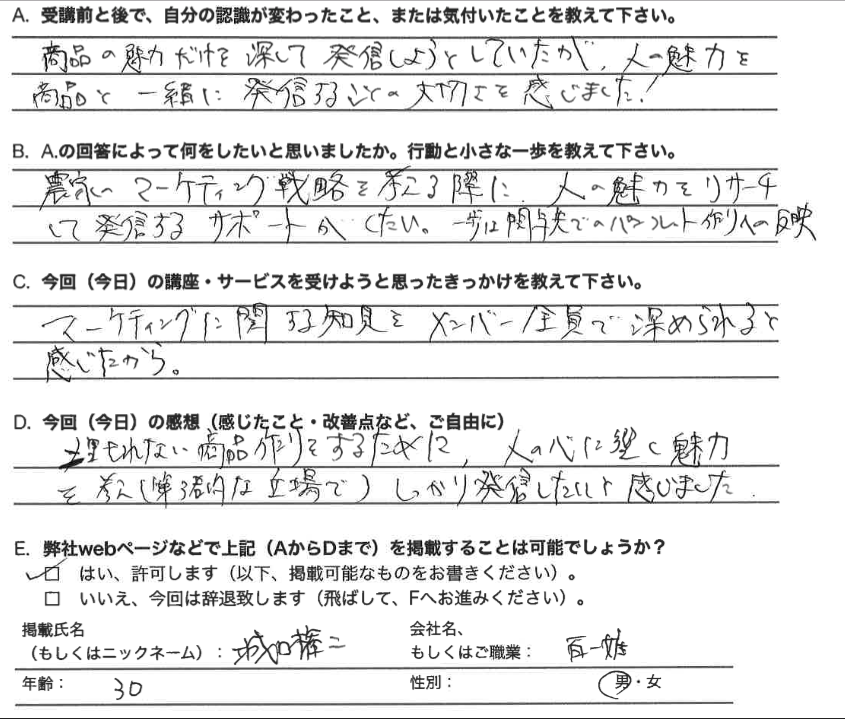 A. 受講前と後で、自分の認識が変わったこと、または気付いたことを教えて下さい。
商品の魅力だけを深して発信しようとしていたが、人の魅力を
商品と一緒に発信することの大切さを感じました!
B. A.の回答によって何をしたいと思いましたか。行動と小さな一歩を教えて下さい。
農家のマーケティング戦略を考える際に、人の魅力をリサーチ
して発信するサポートがしたい。一歩は関与先でのパンフレット作りへの反映
C. 今回(今日)の講座・サービスを受けようと思ったきっかけを教えて下さい。
マーケティングに関する知見をメンバー全員で深められると
感じたから。
D. 今回(今日)の感想(感じたこと・改善点など、ご自由に)
埋もれない商品作りをするために、人の心に響く魅力
を考え(第3者的な立場で)しっかり発信したいと感じました.
E. 弊社webページなどで上記(AからDまで)を掲載することは可能でしょうか?
はい、許可します(以下、掲載可能なものをお書きください)。
いいえ、今回は辞退致します(飛ばして、Fへお進みください)。
掲載氏名 会社名、
(もしくはニックネーム): もしくはご職業:
年齢: 30 性別: 男・女